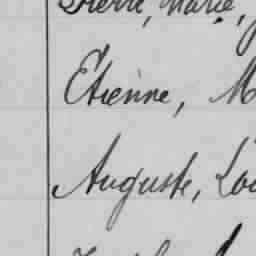 Pierre, Marie,
Etienne, M
Auguste, Lou